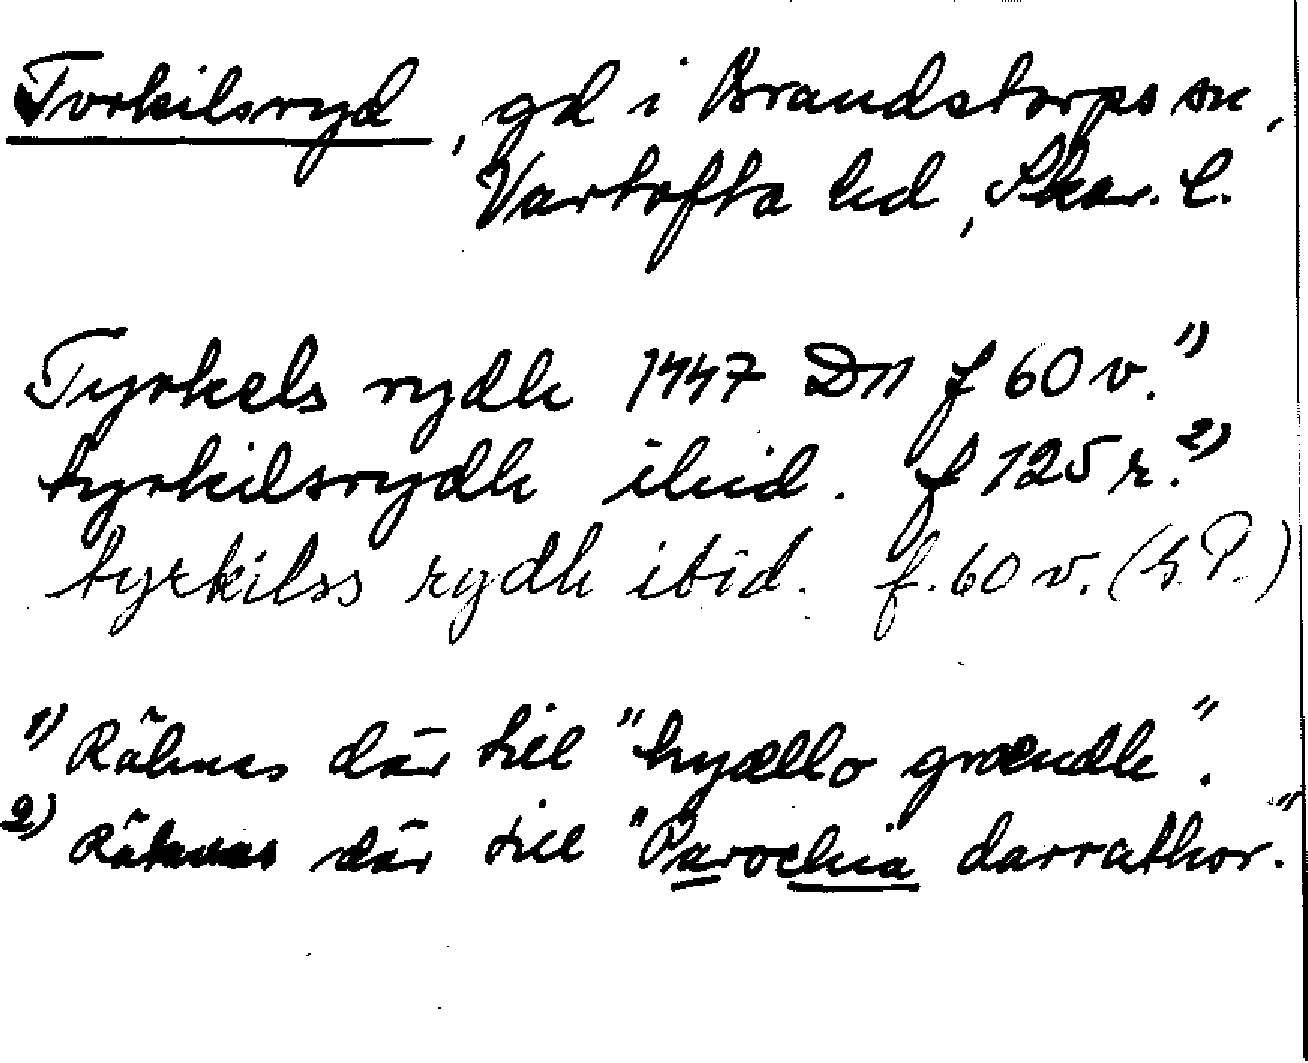 Torkilsryd, gd i Brandstorps sn,
Vartofta hd, Skar. l.
Tyrkels rydh 1447 D11 f 60 v.1)
tyrkilsrydh ibid. f 125 r.2)
tyrkilss rydh ibid. f. 60 v. (
1) Räknas där till "hyællo grændh".
2) Räknas där till "Parochia darrathor."